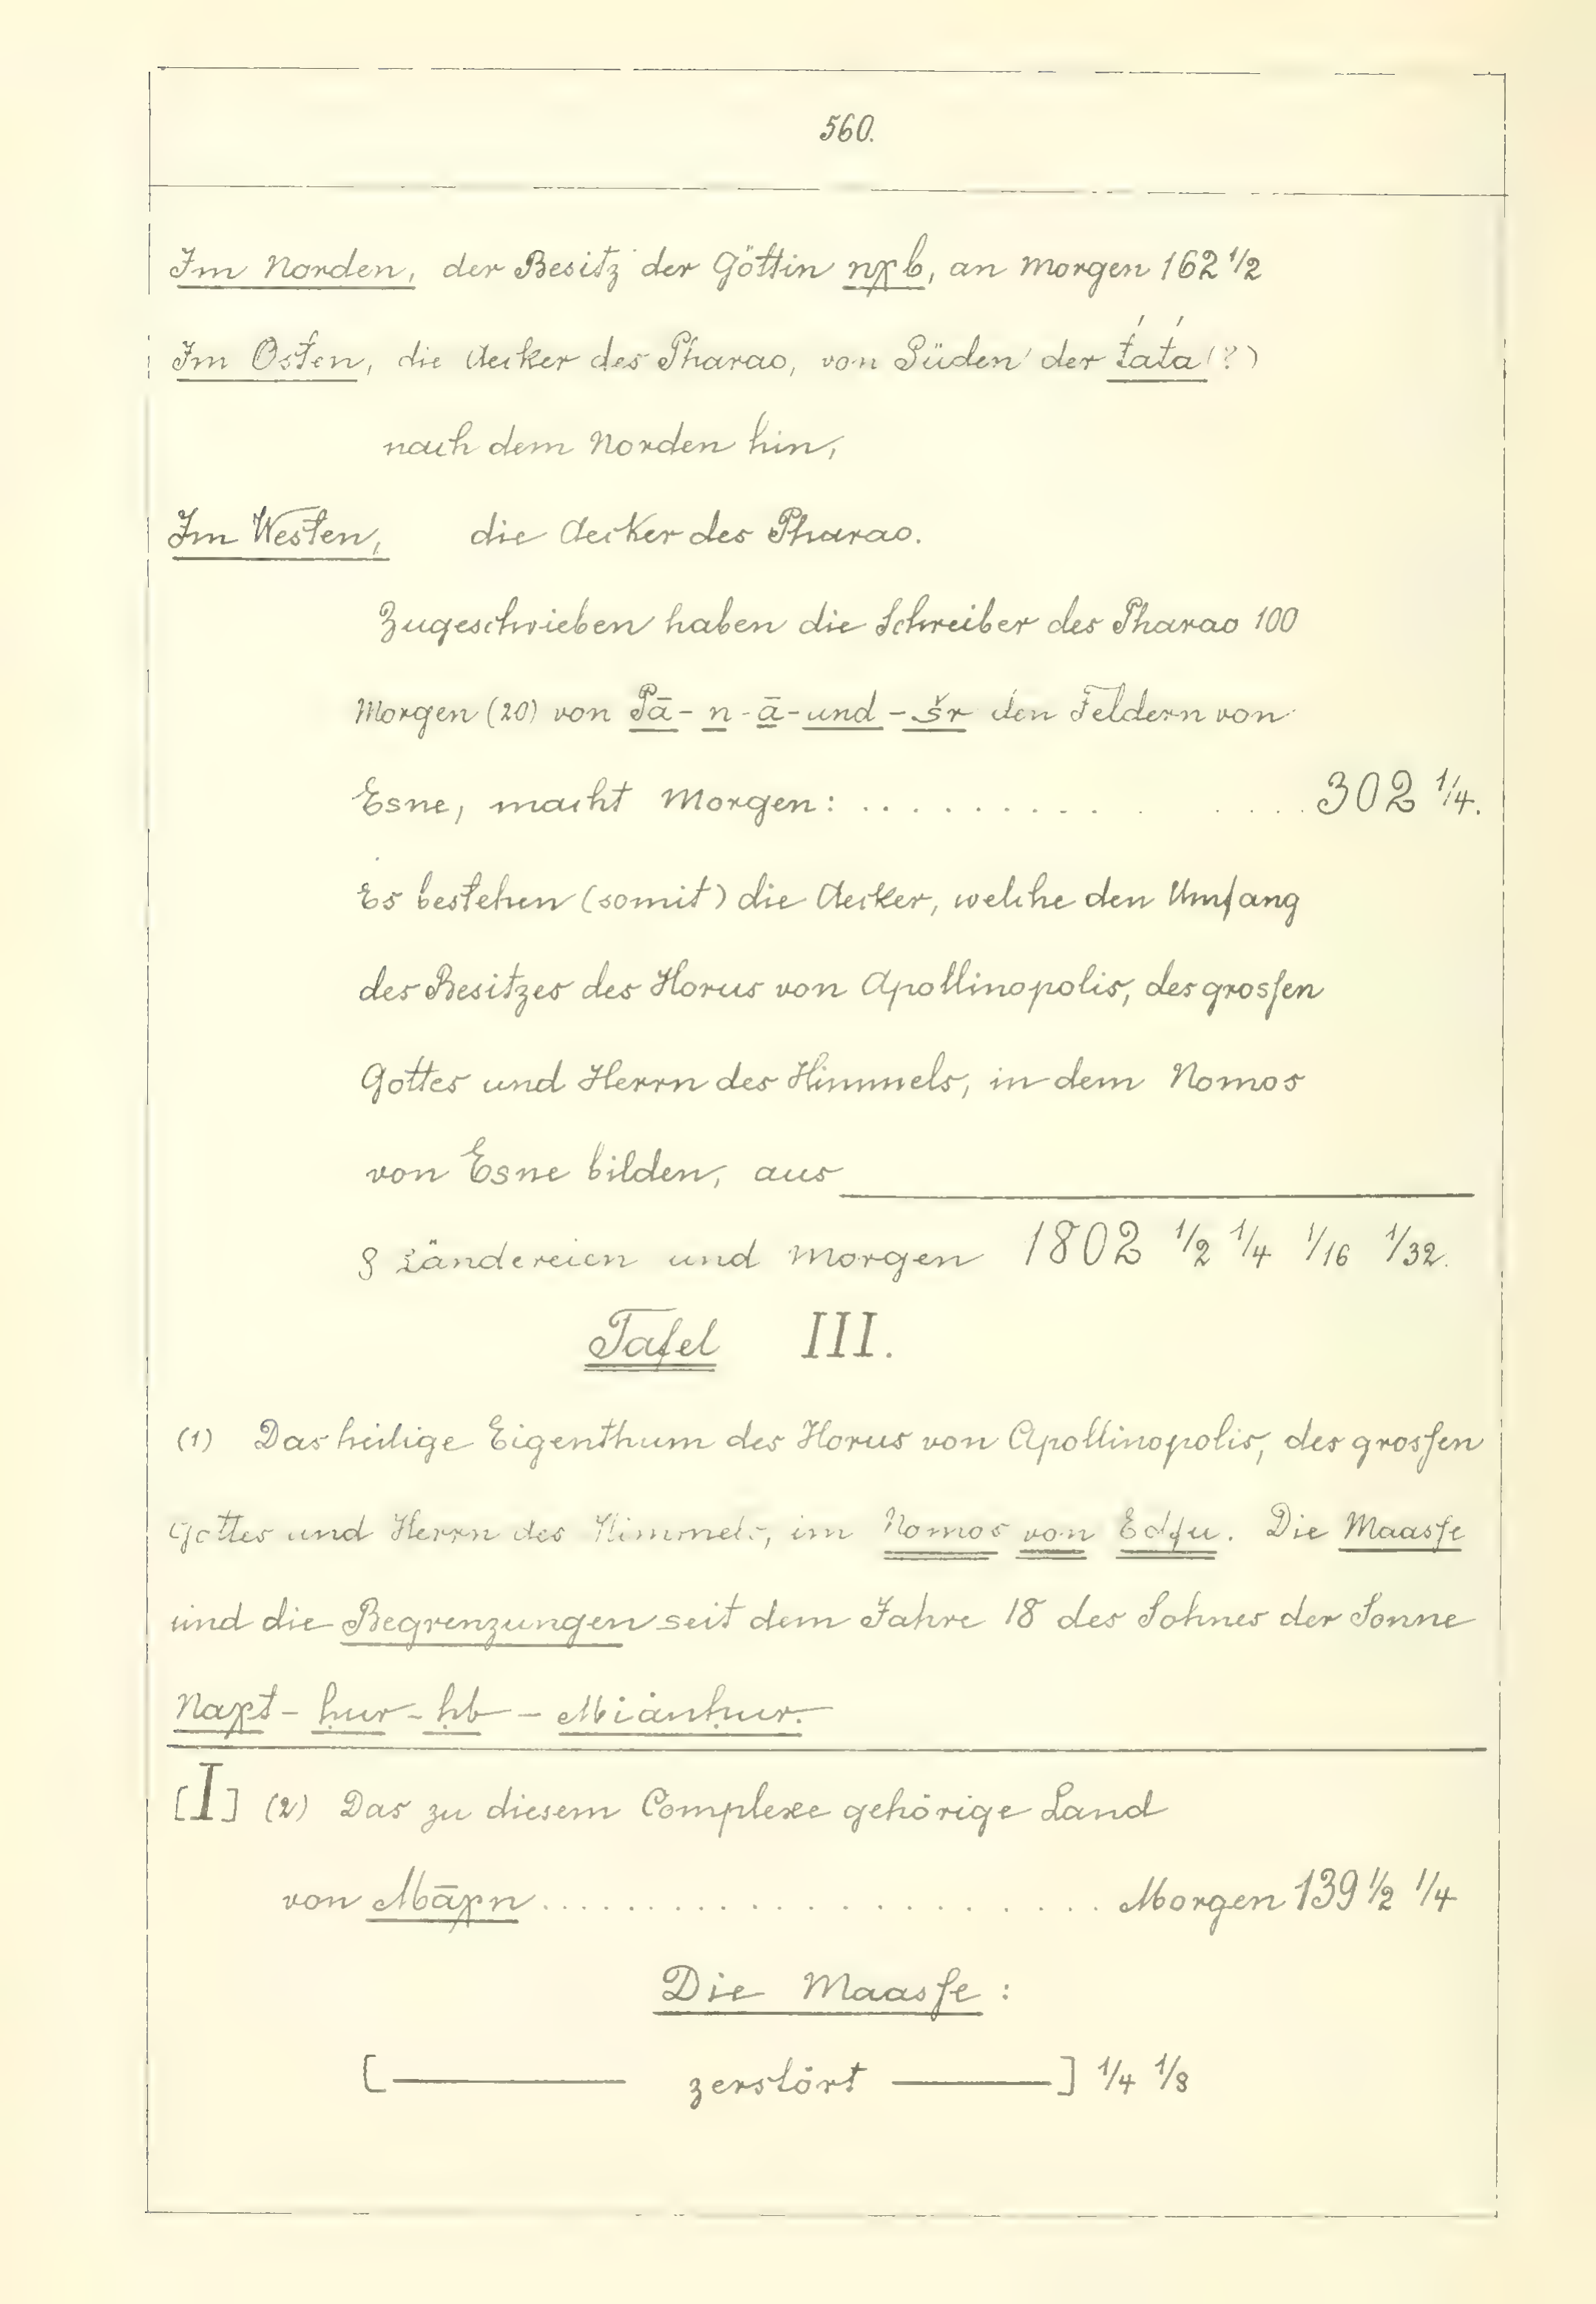 560.
Im Norden, der Besitz der Göttin nχb, an Morgen 162 1/2
Im Osten, die Aecker des Pharao, von Süden der t́at́a (?)
nach dem Norden hin,
Im Westen, die Aecker des Pharao.
Zugeschrieben haben die Schreiber des Pharao 100
Morgen (20) von Pā-n-ā-und-šr den Feldern von
Esne, macht Morgen: . . . . . . . . . . . . . . 302 1/4.
Es bestehen (somit) die Aecker, welche den Umfang
des Besitzes des Horus von Apollinopolis, des grossen
Gottes und Herrn des Himmels, in dem Nomos
von Esne bilden, aus
8 Ländereien und Morgen 1802 1/2 1/4 1/16 1/32.
Tafel III.
(1) Das heilige Eigenthum des Horus von Apollinopolis, des grossen
Gottes und Herrn des Himmels, im Nomos von Edfu. Die Maasse
und die Begrenzungen seit dem Jahre 18 des Sohnes der Sonne
Naχt-ḥur-ḥb-Miȧnḥur.
[I] (2) Das zu diesem Complexe gehörige Land
von Māχn . . . . . . . . . . . . . . . . . . . . Morgen 139 1/2 1/4
Die Maasse :
[——— zerstört ———] 1/4 1/8